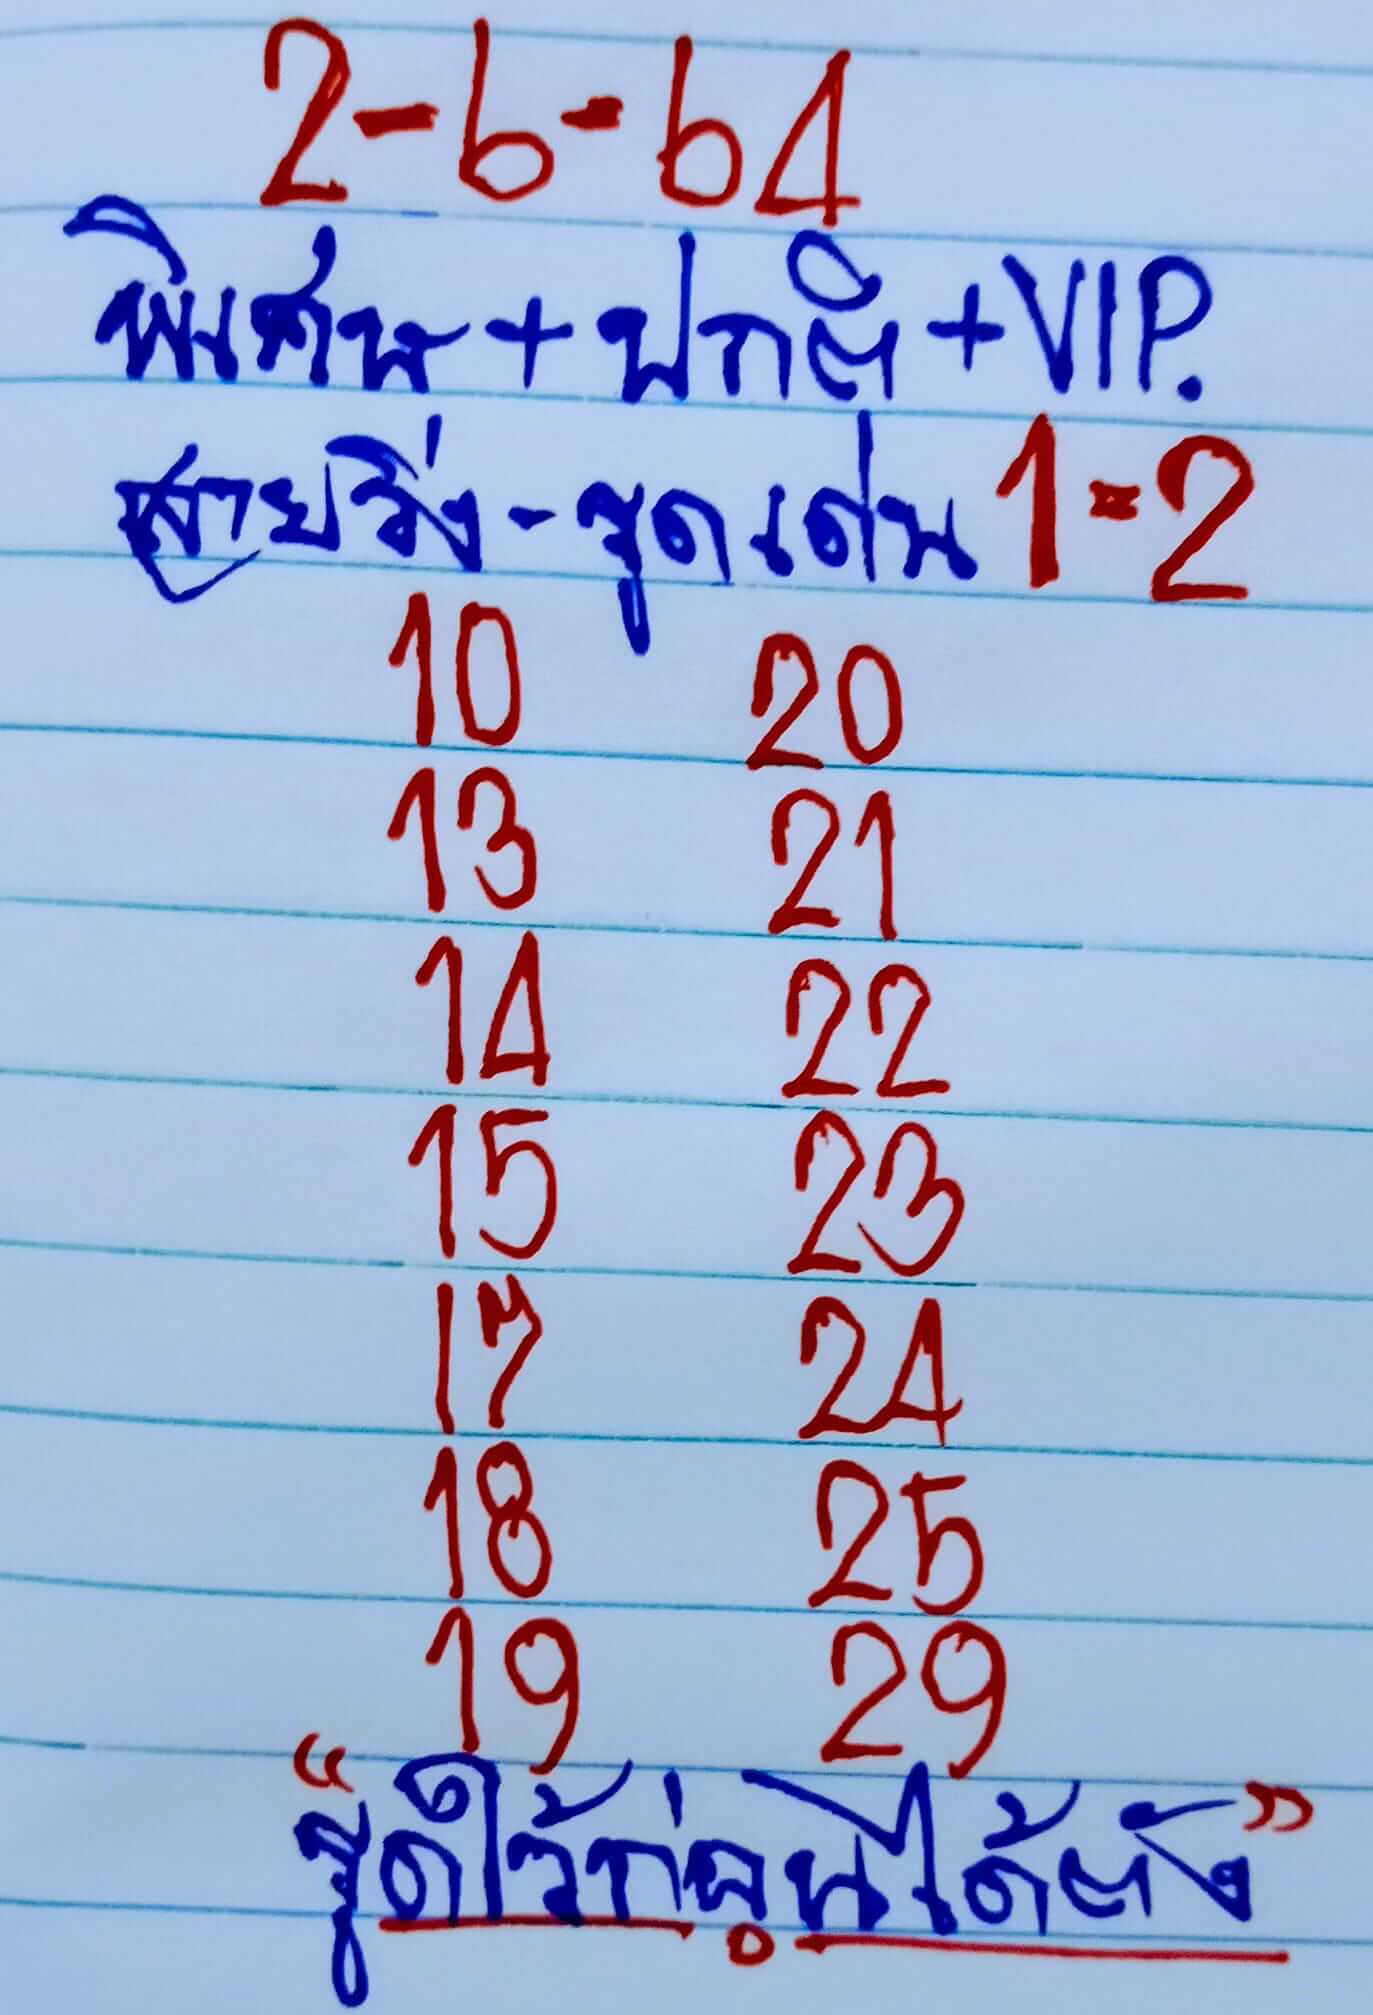 2-6-64
พิเศษ+ปกติ+VIP.
สายวิ่ง-ชุดเด่น 1-2
10 20
13 21
14 22
15 23
17 24
18 25
19 29
"ชุดใว้ก่อน ได้ตัง"